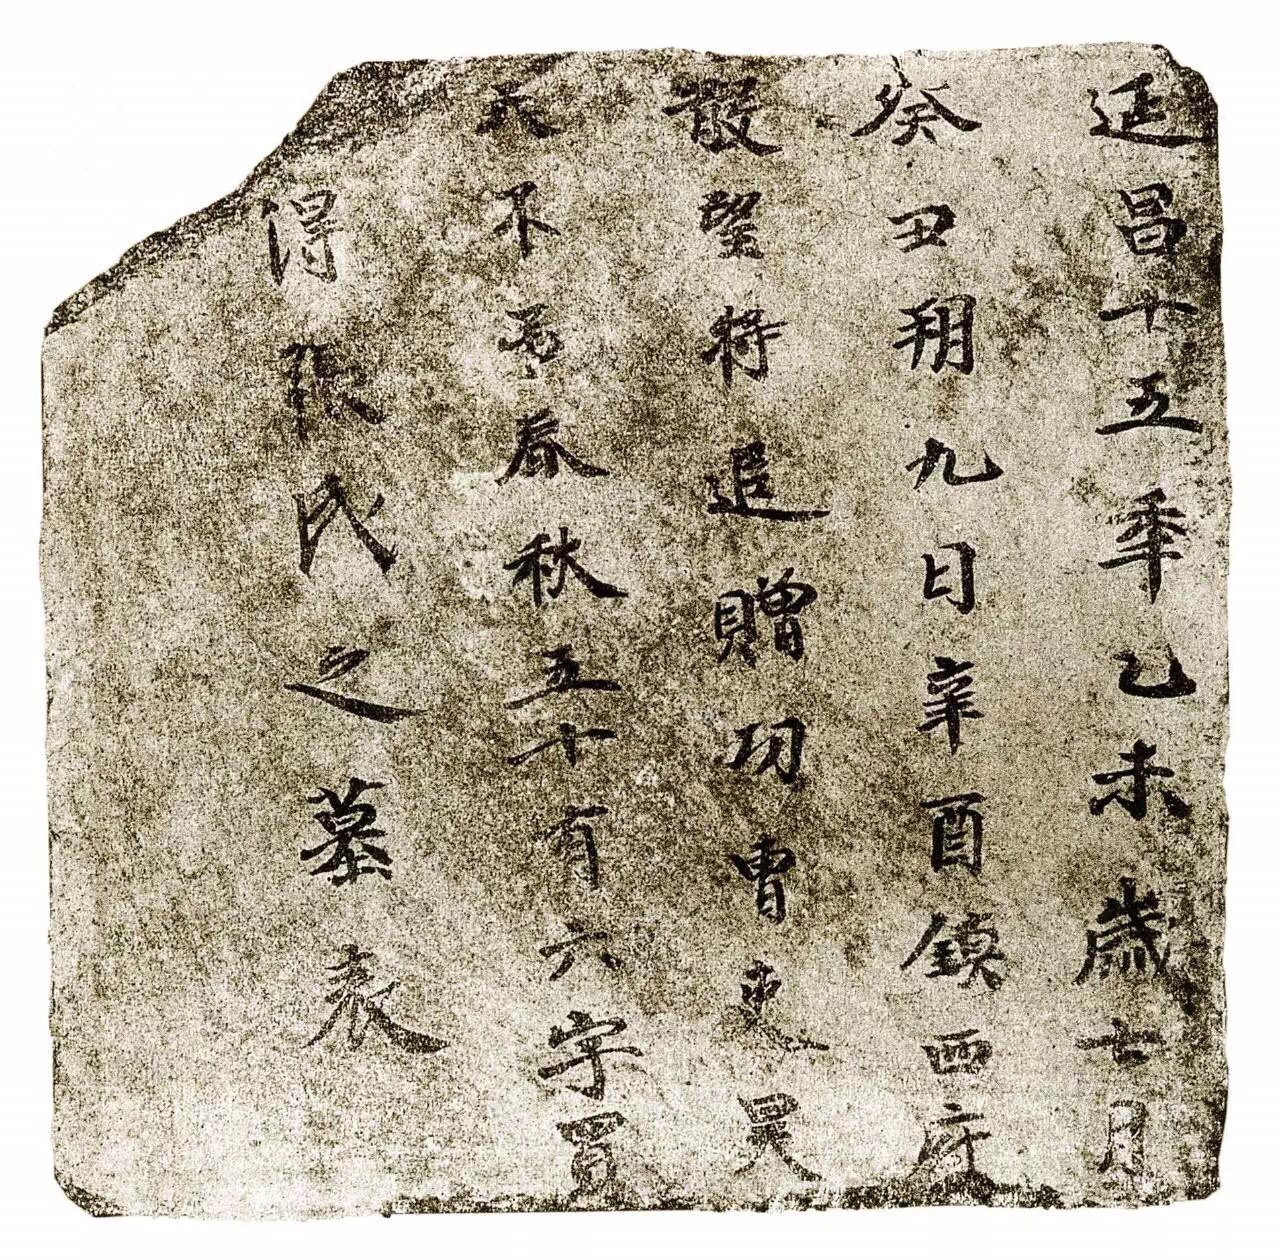 延昌十五年乙未歲七月
癸丑朔九日辛酉鎮西府
散望將追贈功曹吏昊
天不吊春秋五十有六字買
得張氏之墓表